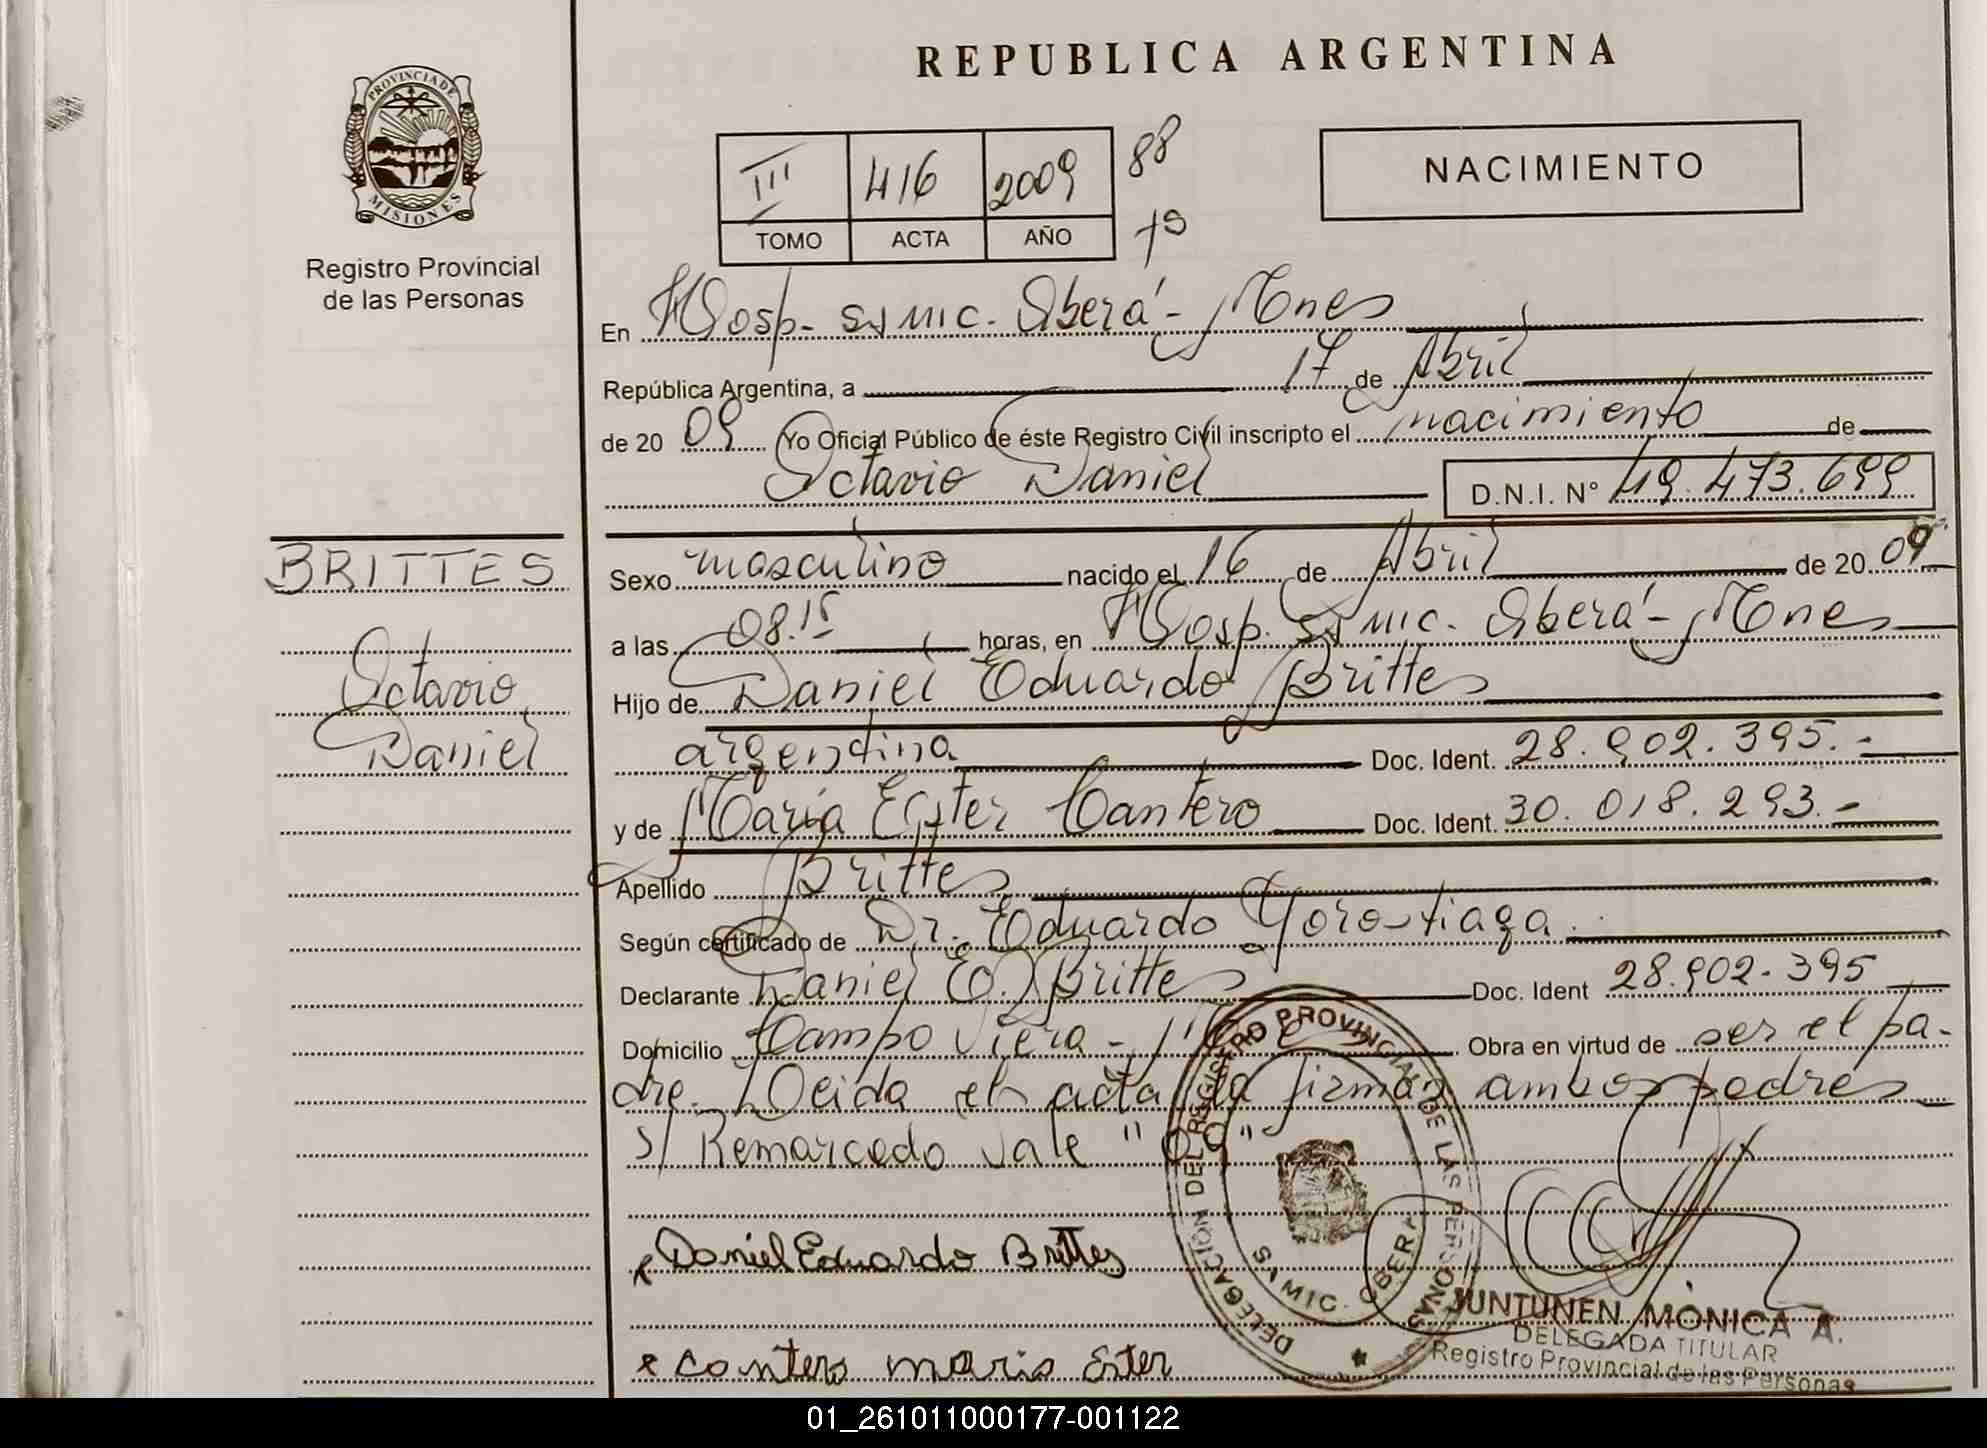 REPUBLICA ARGENTINA
PROVINCIA DE
MISIONES
Registro Provincial
de las Personas
III 416 2009 88
TOMO ACTA AÑO
NACIMIENTO
En Hosp. SAMIC. Oberá - Mnes
República Argentina, a 17 de Abril
de 20 09 Yo Oficial Público de éste Registro Civil inscripto el nacimiento de
Octavio Daniel D.N.I. N° 49.473.699
BRITTES
Octavio
Daniel
Sexo masculino nacido el 16 de Abril de 20 09
a las 08.15 horas, en Hosp. SAMIC. Oberá - Mnes
Hijo de Daniel Eduardo Brittes
argentina Doc. Ident. 28.902.395.-
y de María Ester Cantero Doc. Ident. 30.018.293.-
Apellido Brittes
Según certificado de Dr. Eduardo Gorostiaga.
Declarante Daniel E. Brittes Doc. Ident 28.902.395
Domicilio Campo Viera - Obra en virtud de ser el pa-
dre. Leida el acta la firman ambos padres
S/ Remarcado vale "09"
x Daniel Eduardo Brittes
x cantero maria Ester
DELEGACIÓN DEL REGISTRO PROVINCIAL DE LAS PERSONAS
SAMIC. OBERÁ
JUNTUNEN MÓNICA A.
DELEGADA TITULAR
Registro Provincial de las Personas
01_261011000177-001122